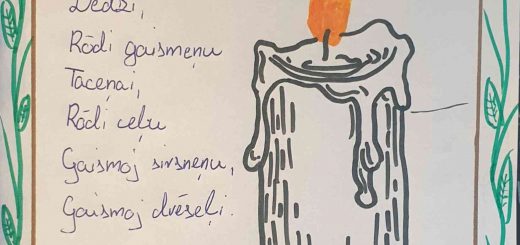 Dedzi,
Rādi gaismeņu
Taceņai,
Rādi ceļu
Gaismoj sirsneņu,
Gaismoj dvēseļi.